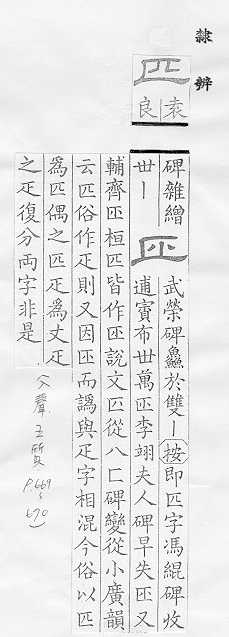 隸辨
匹
袁
良
碑雜繒
丗丨
武榮碑鱻於雙丨按即匹字馮緄碑收
逋賓布丗萬匹李翊夫人碑早失匹又
輔齊匹桓匹皆作匹說文匹從八匚碑變從小廣韻
云匹俗作疋則又因匹而譌與疋字相混今俗以匹
為匹偶之匹疋為丈疋
之疋復分両字非是
入聲 五質
P.669
~
670